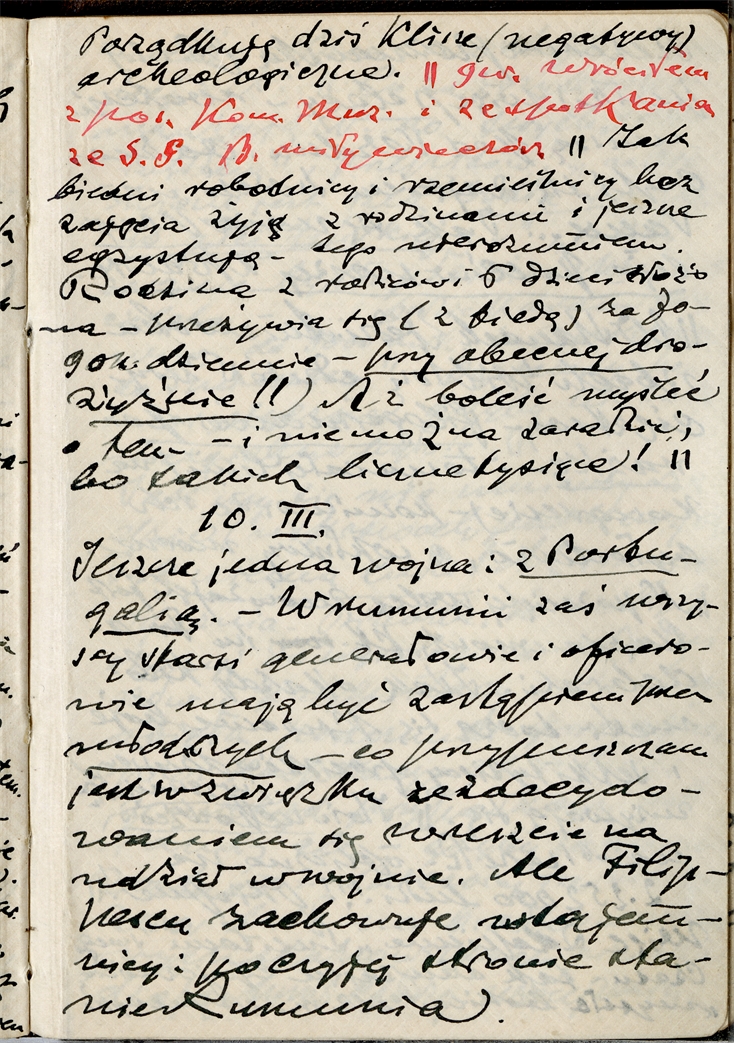 Porządkuję dziś klisze (negatywy)
archeologiczne. || gw. wróciłem
z pos. Kom. Muz. i ze spotkania
ze S. P. B. || Jak
biedni robotnicy i rzemieślnicy bez
zajęcia żyją z rodzinami i jeszcze
egzystują - tego nie rozumiem.
Rodzina z rodziców i 6 dzieci złożo
na - przeżywia się (z biedą) za
dziennie - przy obecnej dro-
żyźnie!!) Aż boleść myśleć
o tem - i nie można zaradzić,
bo takich liczne tysiące! ||
10. III.
Jeszcze jedna wojna: z Portu-
galią. - W rumunii zaś wszy-
scy starsi generałowie i oficero-
wie mają być zastąpieni przez
młodszych - co przypuszczam
jest w związku ze zdecydo-
waniem się wreszcie na
udział w wojnie. Ale Filip-
pescu zachowuje w tajem-
nicy: po czyjej stronie sta-
nie Rumunia).